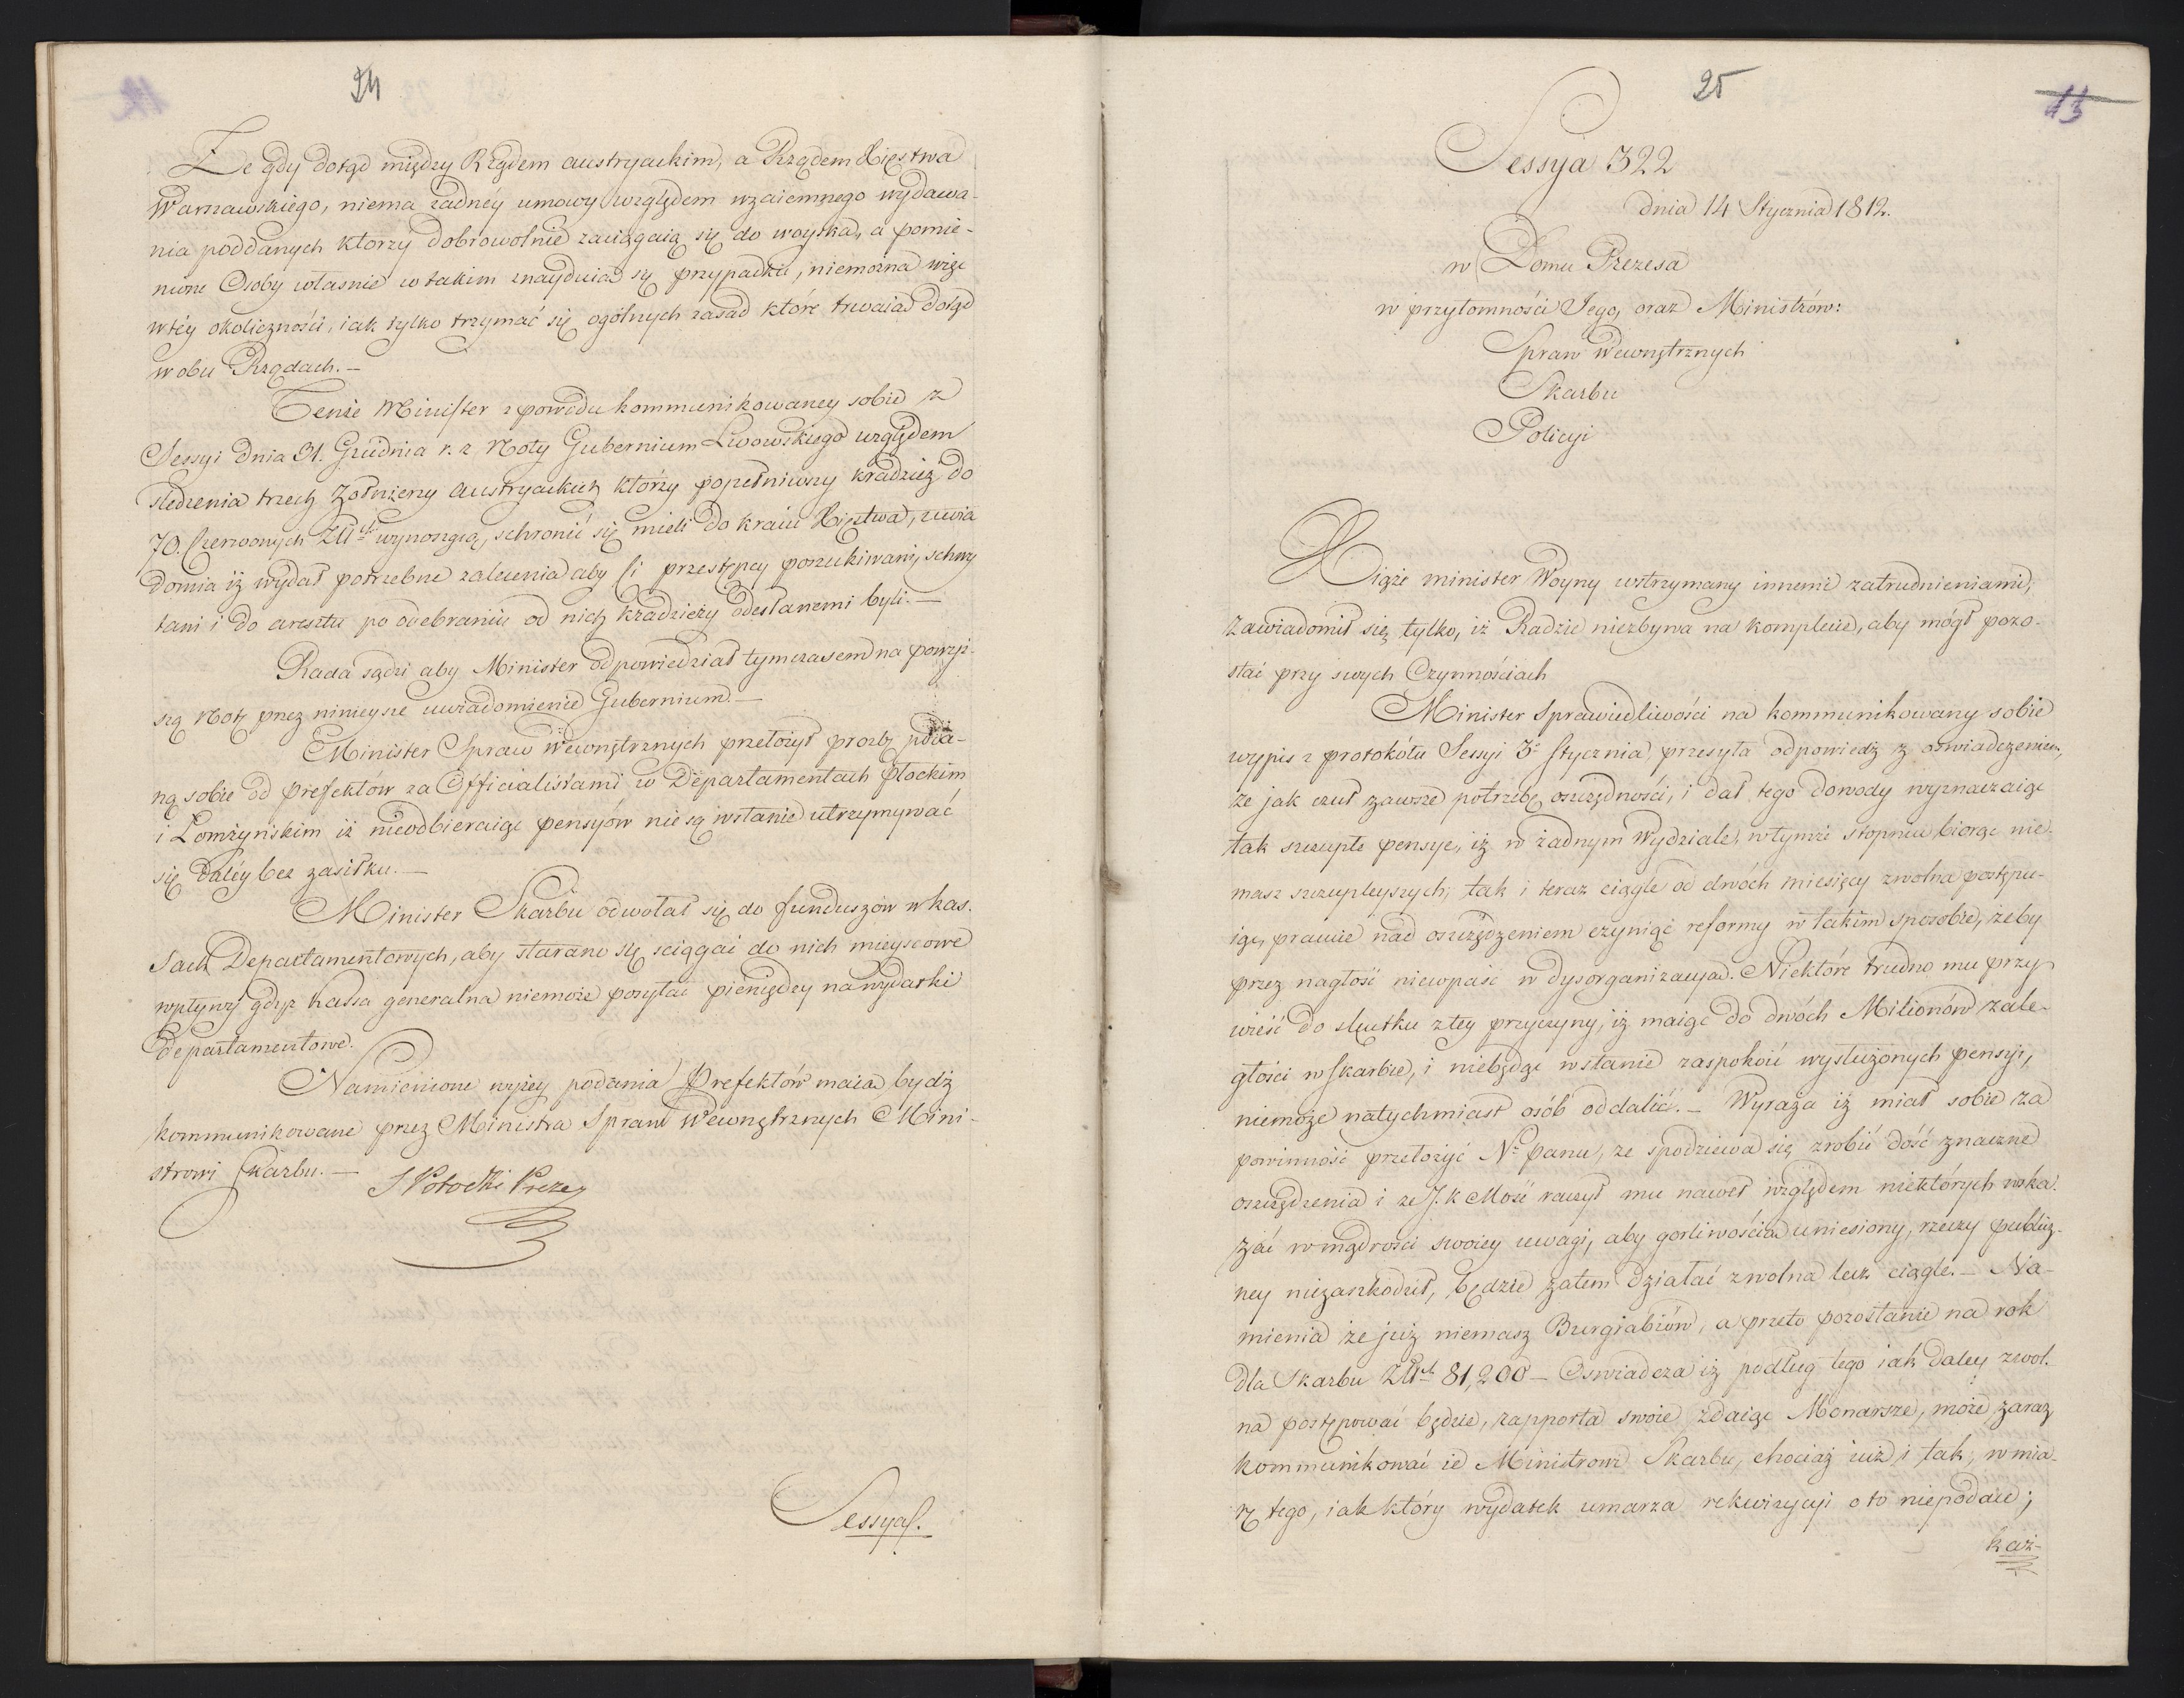 24
Że gdy dotąd między Rządem austryackim, a Rządem Xięstwa
Warszawskiego, niema żadnéy umowy względem wzaiemnego wydawa-
nia poddanych ktorzy dobrowolnie zaciągaią się do woyska, a pomie-
nione Osoby własnie w takim znayduią się przypadku, niemożna więc
w téy okoliczności, iak tylko trzymać się ogólnych zasad które trwaią dotąd
w obu Rządach. —
Tenże Minister z powodu kommunikowaney sobie z
Sessyi dnia 31. Grudnia r. z. Noty Gubernium Lwowskiego względem
sledzenia trzech Żołnierzy Austryackich którzy popełniwszy kradzież do
70. Czerwonych Złłch wynoszącą, schronić się mieli do kraiu Xięstwa, uwia
domia iż wydał potrzebne zalecenia aby ci przestępcy poszukiwani, schwy
tani i do aresztu po odebraniu od nich kradzieży odesłanemi byli. —
Rada sądzi aby Minister odpowiedział tymczasem na powyż-
szą Notę przez ninieysze uwiadomienie Gubernium. —
Minister Spraw Wewnętrznych przełożył prozbę poda-
ną sobie od Prefektów za Officialistami w Departamentach Płockim
i Łomżyńskim iż nieodbieraiąc pensyów nie są wstanie utrzymywać
się daléy bez zasiłku. —
Minister Skarbu odwołał się do funduszów w kas-
sach Departamentowych, aby starano się sciągać do nich mieyscowe
wpływy gdyż kassa generalna niemoże posyłać pieniędzy na wydatki
Departamentowe.
Namienione wyżey podania Prefektów maią bydź
kommunikowane przez Ministra Spraw Wewnętrznych Mini-
strowi Skarbu. —
S Potocki Prezes
Sessya.
25
13
Sessya 322
dnia 14 Stycznia 1812.
w Domu Prezesa
w przytomności Jego, oraz Ministrów:
Spraw Wewnętrznych
Skarbu
Policyi
Xiąże minister Woyny wstrzymany innemi zatrudnieniami,
zawiadomił się tylko, iż Radzie niezbywa na komplecie, aby mógł pozo-
stać przy swych Czynnościach
Minister Sprawiedliwości na kommunikowany sobie
wypis z protokółu Sessyi 3. Stycznia, przesyła odpowiedź z oswiadczeniem,
że jak czuł zawsze potrzebę oszczędności, i dał tego dowody wyznaczaiąc
tak szczupłe pensye, iż w żadnym Wydziale, w tymże stopniu biorąc nie-
masz szczupleyszych, tak i teraz ciągle od dwóch miesięcy zwolna postępu-
iąc, pracuie nad oszczędzeniem czyniąc reformy w takim sposobie, żeby
przez nagłość niewpaść w dysorganizacyą. Niektóre trudno mu przy
wieść do skutku z tey przyczyny, iż maiąc do dwóch Milionów zale-
głości w skarbie, i niebędąc wstanie zaspokoić wysłużonych pensyi,
niemoże natychmiast osób oddalić. — Wyraża iż miał sobie za
powinność przełożyć N. Panu, że spodziewa się zrobić dość znaczne
oszczędzenia i że J. K Mość raczył mu nawet względem niektórych wska-
zać w mądrości swoiey uwagi, aby gorliwością uniesiony, rzeczy public-
ney niezaszkodził, będzie zatem działać zwolna lecz ciągle. — Na-
mienia że już niemasz Burgrabiów, a przeto pozostanie na rok
dla Skarbu Złłch 81,200 — Oswiadcza iż podług tego iak daley zwol-
na postępować będzie, rapporta swoie zdaiąc Monarsze, może zaraz
kommunikować ie Ministrowi Skarbu, chociaż iuż i tak, w mia-
rę tego, iak który wydatek umarza rekwizycyi o to niepodaie;
każ-